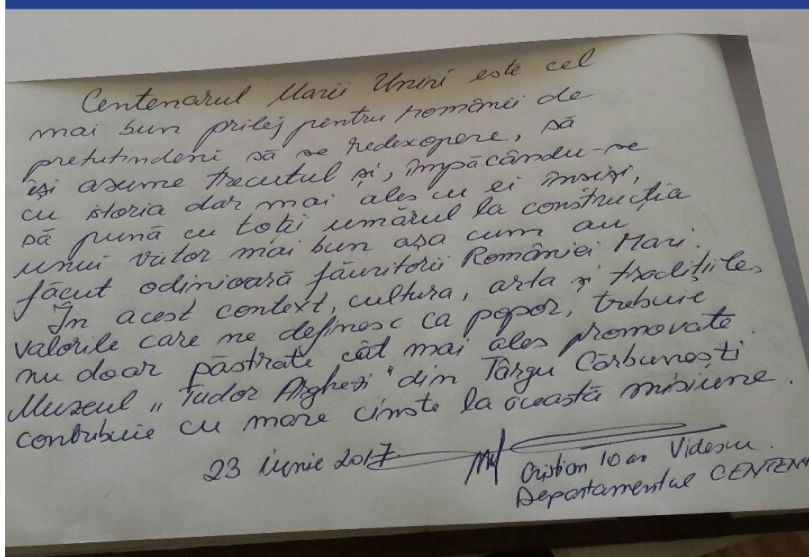 Centenarul Marii Uniri este cel
mai bun prilej pentru românii de
pretutindeni să se redescopere, să
își asume trecutul și, împăcându-se
cu istoria dar mai ales cu ei înșiși,
să pună cu toții umărul la construcția
unui viitor mai bun așa cum au
făcut odinioară făuritorii României Mari.
În acest context, cultura, arta și tradițiile,
valorile care ne definesc ca popor, trebuie
nu doar păstrate cât mai ales promovate.
Muzeul „Tudor Arghezi" din Târgu Cărbunești
contribuie cu mare cinste la această misiune.
23 iunie 2017
Cristian Ioan
Departamentul CENTEN